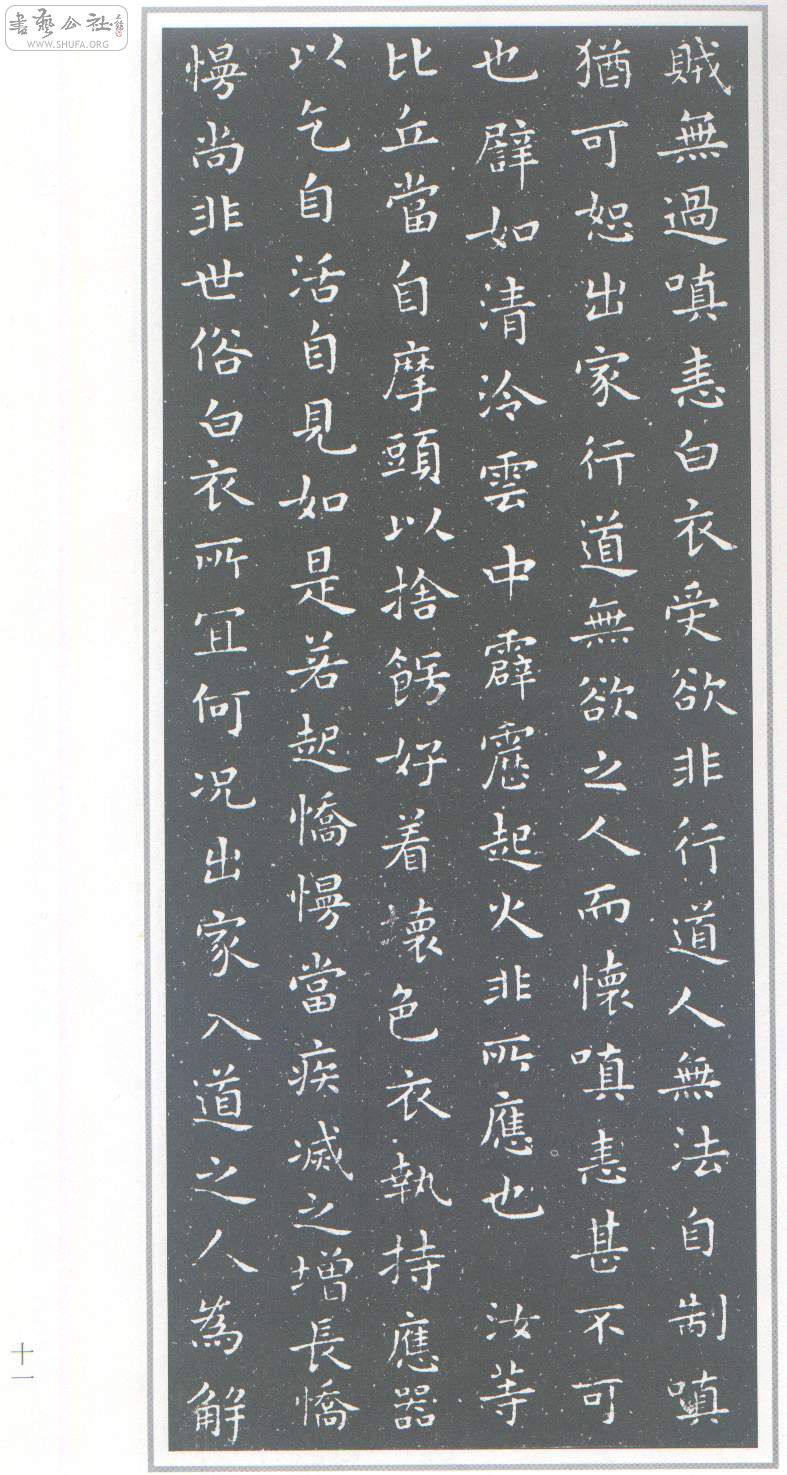 賊無過嗔恚白衣受欲非行道人無法自制嗔
猶可恕出家行道無欲之人而懷嗔恚甚不可
也譬如清冷雲中霹靂起火非所應也 汝等
比丘當自摩頭以捨餝好着壞色衣執持應器
以乞自活自見如是若起憍慢當疾滅之增長憍
慢尚非世俗白衣所宜何況出家入道之人為解
十一
書藝公社
WWW.SHUFA.ORG